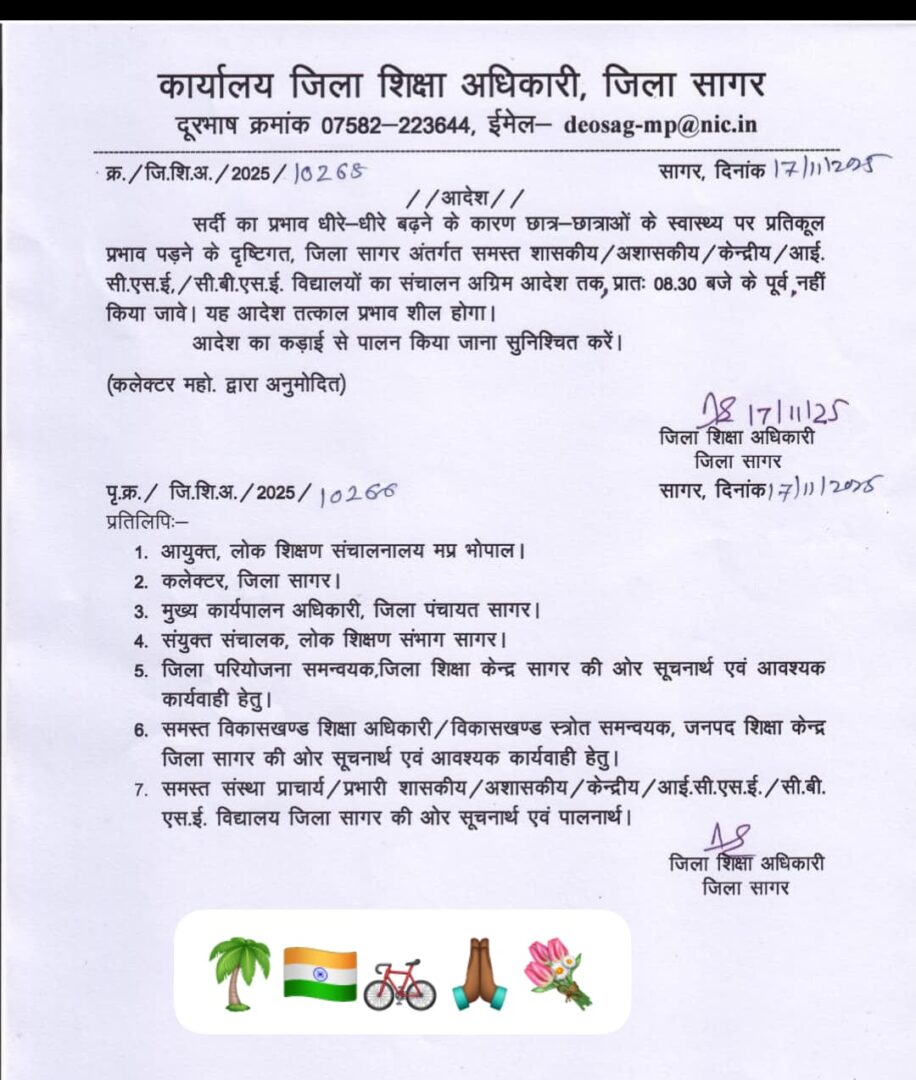 कार्यालय जिला शिक्षा अधिकारी, जिला सागर
दूरभाष क्रमांक 07582–223644, ईमेल– deosag-mp@nic.in
क्र./जि.शि.अ./2025/ 10268 सागर, दिनांक 17/11/2025
//आदेश//
सर्दी का प्रभाव धीरे–धीरे बढ़ने के कारण छात्र–छात्राओं के स्वास्थ्य पर प्रतिकूल
प्रभाव पड़ने के दृष्टिगत, जिला सागर अंतर्गत समस्त शासकीय/अशासकीय/केन्द्रीय/आई.
सी.एस.ई./सी.बी.एस.ई. विद्यालयों का संचालन अग्रिम आदेश तक, प्रातः 08.30 बजे के पूर्व, नहीं
किया जावे। यह आदेश तत्काल प्रभाव शील होगा।
आदेश का कड़ाई से पालन किया जाना सुनिश्चित करें।
(कलेक्टर महो. द्वारा अनुमोदित)
17/11/25
जिला शिक्षा अधिकारी
जिला सागर
पृ.क्र./ जि.शि.अ./2025/ 10266 सागर, दिनांक 17/11/2025
प्रतिलिपिः–
1. आयुक्त, लोक शिक्षण संचालनालय मप्र भोपाल।
2. कलेक्टर, जिला सागर।
3. मुख्य कार्यपालन अधिकारी, जिला पंचायत सागर।
4. संयुक्त संचालक, लोक शिक्षण संभाग सागर।
5. जिला परियोजना समन्वयक,जिला शिक्षा केन्द्र सागर की ओर सूचनार्थ एवं आवश्यक
कार्यवाही हेतु।
6. समस्त विकासखण्ड शिक्षा अधिकारी/विकासखण्ड स्त्रोत समन्वयक, जनपद शिक्षा केन्द्र
जिला सागर की ओर सूचनार्थ एवं आवश्यक कार्यवाही हेतु।
7. समस्त संस्था प्राचार्य/प्रभारी शासकीय/अशासकीय/केन्द्रीय/आई.सी.एस.ई./सी.बी.
एस.ई. विद्यालय जिला सागर की ओर सूचनार्थ एवं पालनार्थ।
जिला शिक्षा अधिकारी
जिला सागर